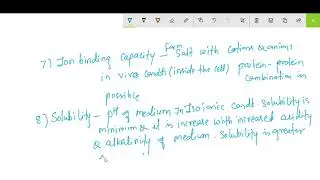 7) Ion binding capacity - form Salt with cations & anions
in vivo condtn (inside the cell) protein-protein
combination is
possible
8) Solubility - pH of medium. In Isoionic condt. Solubility is
minimum & it is increase with increased acidity
& alkalinity of medium. Solubility is greater